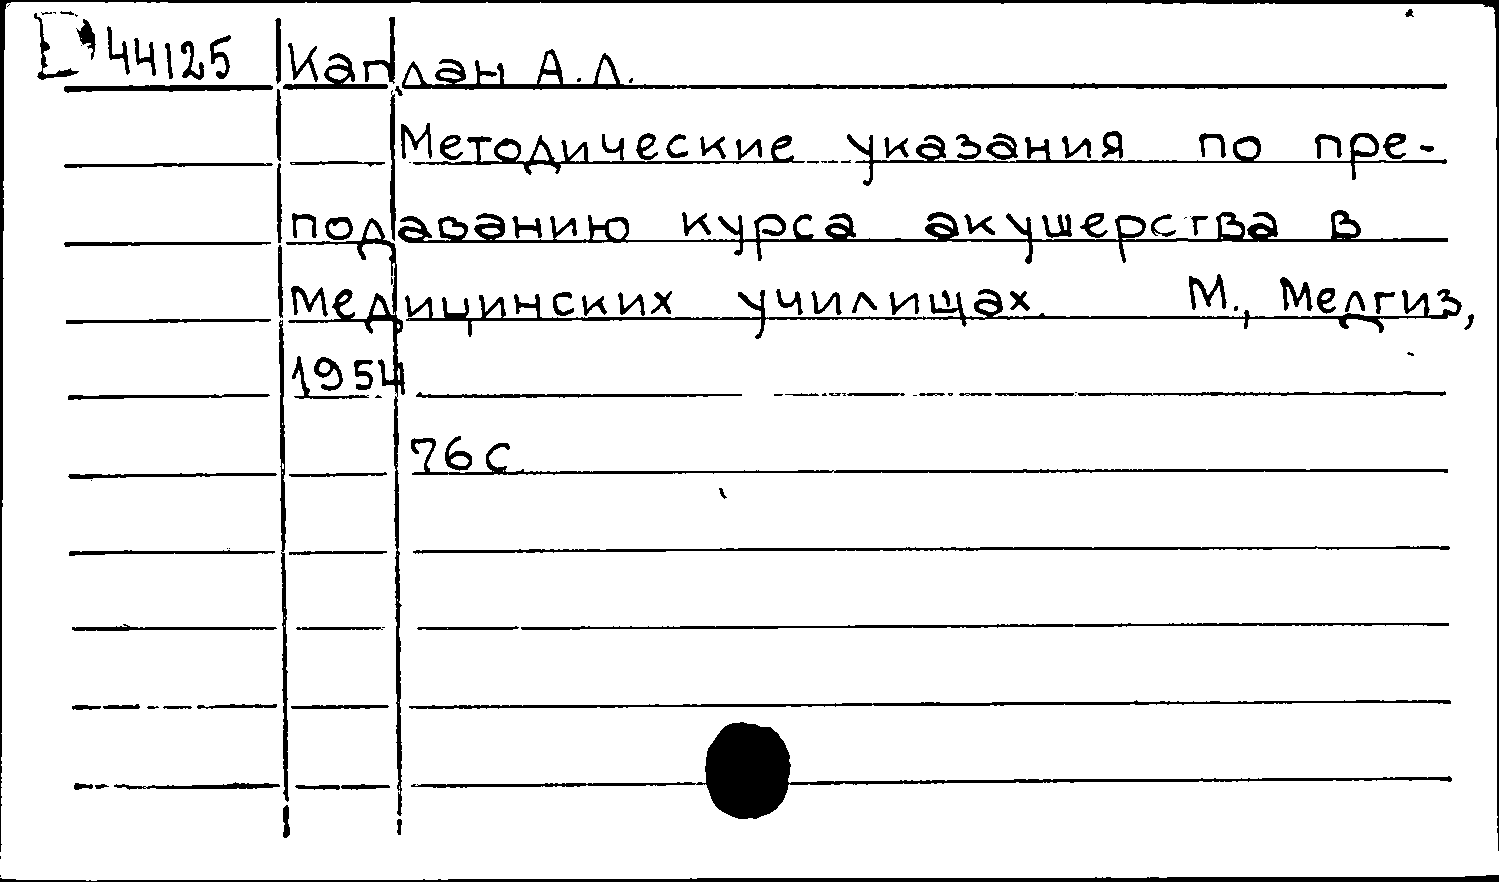 44125 Каплан А.Л.
Методические указания по пре-
подаванию курса акушерства в
медицинских училищах. М., Медгиз,
1954
76 с